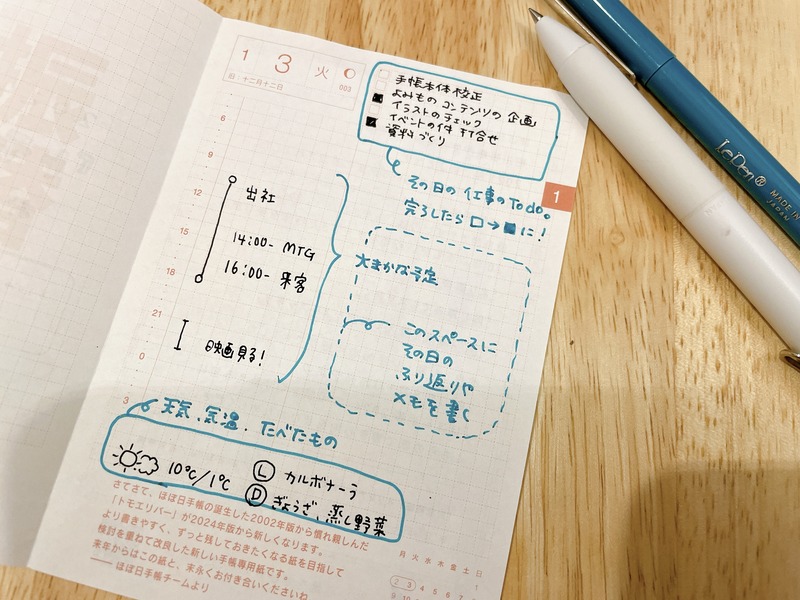 1 3 火
旧:十二月十二日 003
手帳本体校正
よみもの コンテンツの企画
イラストのチェック
イベントの件 打合せ
資料づくり
その日の仕事のToDo。
完了したら□→■に!
1
6
9
12
15
18
21
0
3
出社
14:00- MTG
16:00- 来客
映画見る!
大まかな予定
このスペースに
その日の
ふり返りや
メモを書く
天気、気温、たべたもの
10℃/1℃
Ⓛ カルボナーラ
Ⓓ ぎょうざ、蒸し野菜
さてさて、ほぼ日手帳の誕生した2002年版から慣れ親しんだ
「トモエリバー」が2024年版から新しくなります。
より書きやすく、ずっと残しておきたくなる紙を目指して
検討を重ねて改良した新しい手帳専用紙です。
来年からはこの紙と、末永くお付き合いくださいね
——ほぼ日手帳チームより
月 火 水 木 金 土 日
1
2 3 4 5 6 7 8
9 10
LeDen®
MADE IN
JAPAN